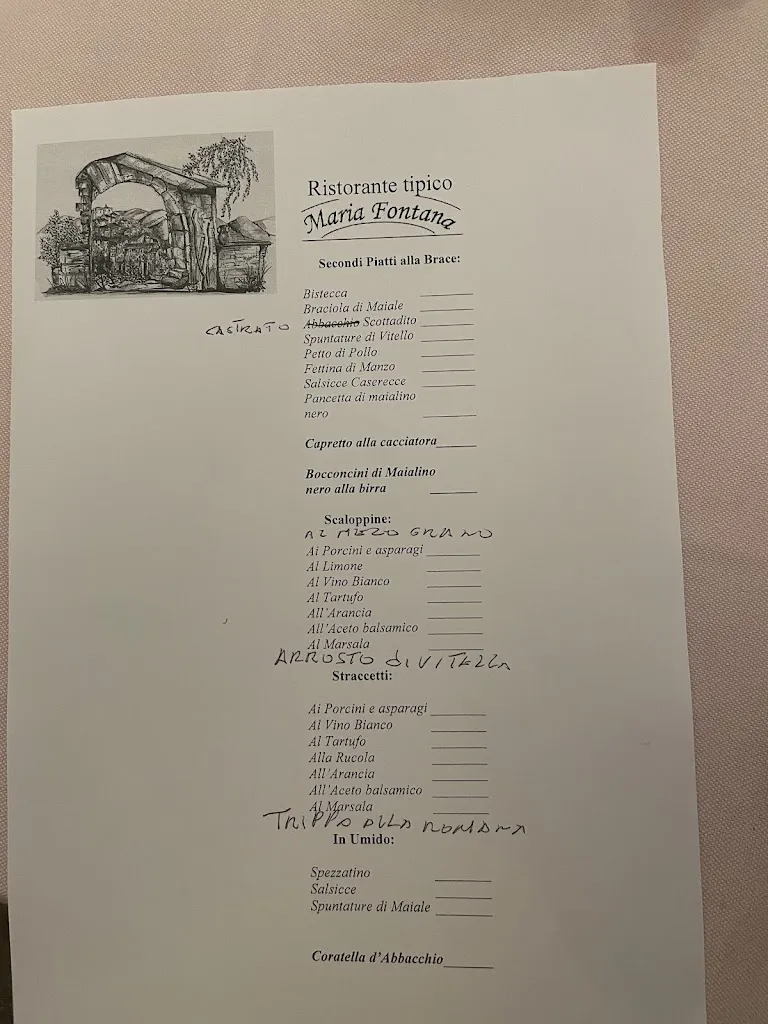 Ristorante tipico
Maria Fontana
Secondi Piatti alla Brace:
Bistecca
Braciola di Maiale
CASTRATO Abbacchio Scottadito
Spuntature di Vitello
Petto di Pollo
Fettina di Manzo
Salsicce Caserecce
Pancetta di maialino
nero
Capretto alla cacciatora
Bocconcini di Maialino
nero alla birra
Scaloppine:
AL MEZO GRANO
Ai Porcini e asparagi
Al Limone
Al Vino Bianco
Al Tartufo
All'Arancia
All'Aceto balsamico
Al Marsala
ARROSTO di VITELLA
Straccetti:
Ai Porcini e asparagi
Al Vino Bianco
Al Tartufo
Alla Rucola
All'Arancia
All'Aceto balsamico
Al Marsala
TRIPPA ALLA ROMANA
In Umido:
Spezzatino
Salsicce
Spuntature di Maiale
Coratella d'Abbacchio